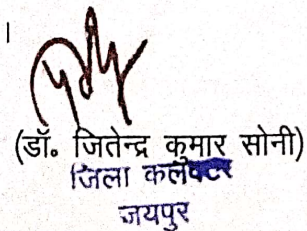 ।
(डॉ. जितेन्द्र कुमार सोनी)
जिला कलेक्टर
जयपुर